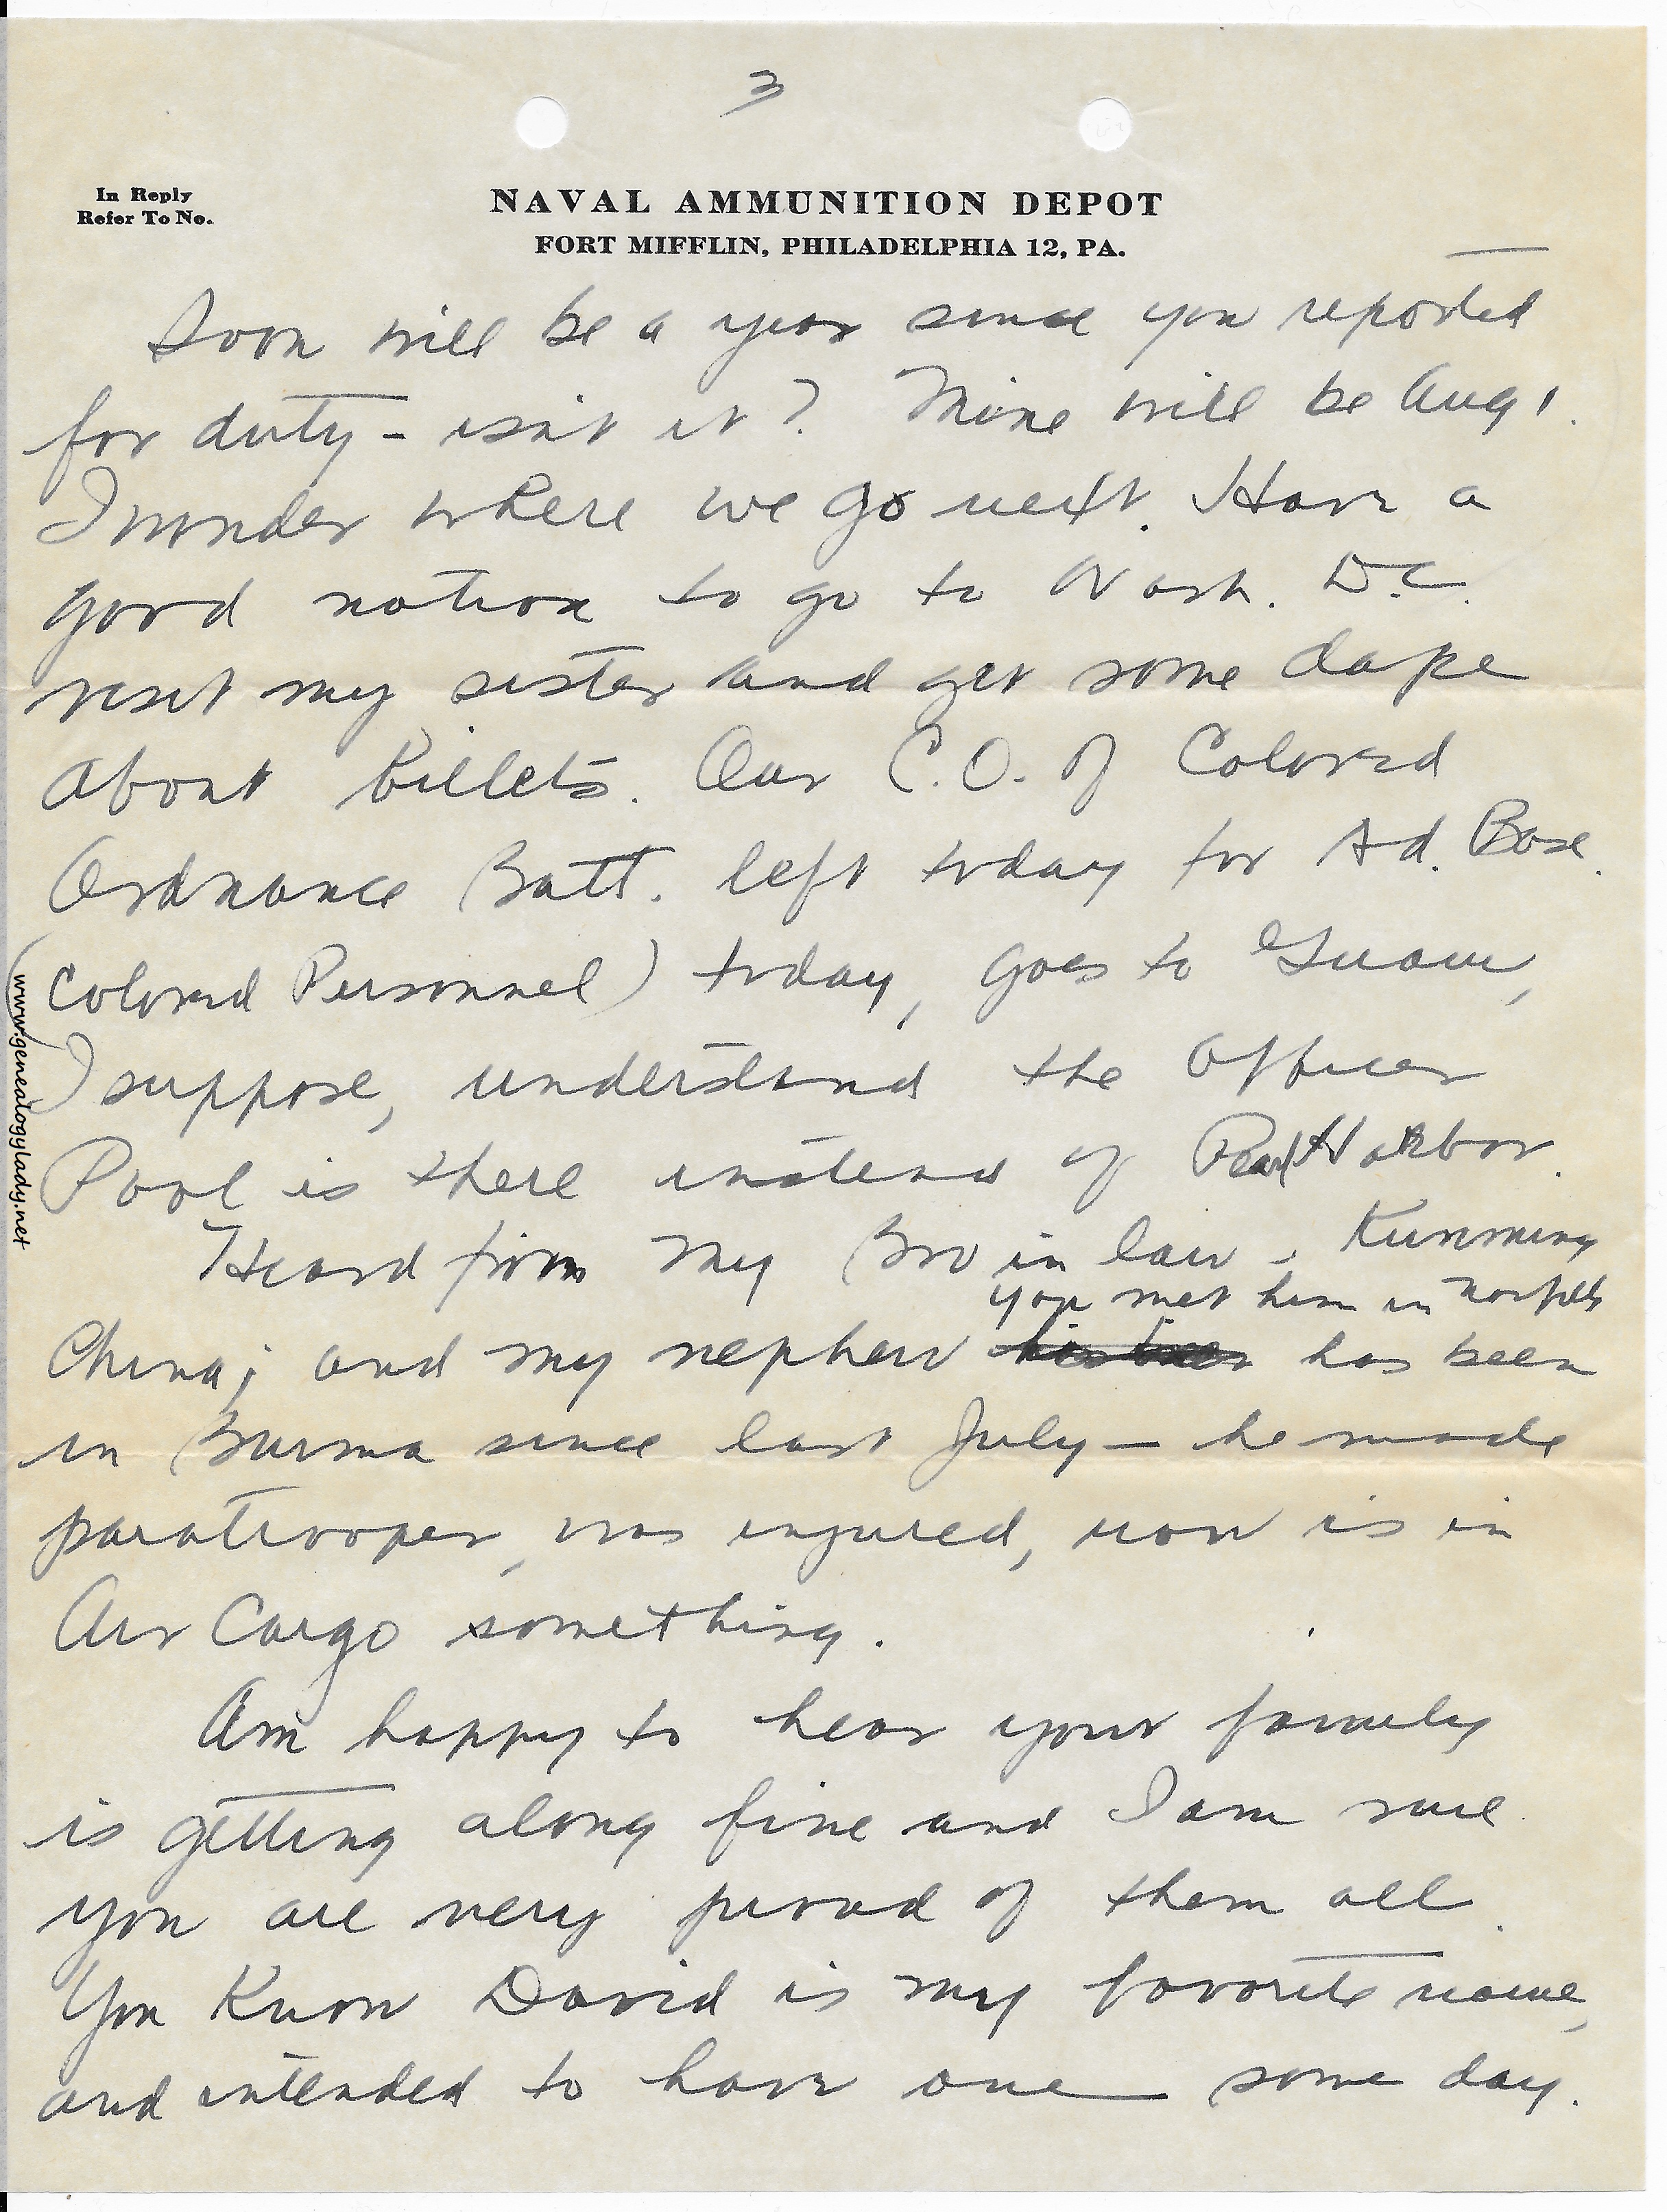 3
In Reply
Refer To No.
NAVAL AMMUNITION DEPOT
FORT MIFFLIN, PHILADELPHIA 12, PA.
Soon will be a year since you reported
for duty - isn't it? Mine will be Aug 1.
I wonder where we go next. Have a
good notion to go to Wash. D.C.
visit my sister and get some dope
about billets. Our C.O. of Colored
Ordnance Batt. left today for Ad. Base.
(Colored Personnel) today, goes to Guam,
I suppose, understand the Officer
Pool is there instead of Pearl Harbor.
Heard from my Bro in law - Kunming
you met him in Norfolk
China; and my nephew has been
in Burma since last July - he made
paratrooper, was injured, now is in
Air Cargo something.
Am happy to hear your family
is getting along fine and I am sure
you are very proud of them all.
You Know David is my favorite name,
and intended to have one - some day.
www.genealogylady.net